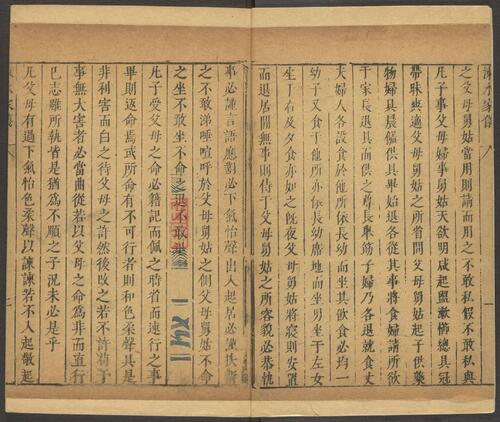 涑水家儀
之父母舅姑當用則請而用之不敢私假不敢私與
凡子事父母婦事舅姑天欲明咸起盥漱櫛總具冠
帶昧爽適父母舅姑之所省問父母舅姑起子供藥
物婦具晨羞供具畢始退各從其事將食婦請所欲
于家長退具而供之尊長舉筯子婦乃各退就食丈
夫婦人各設食於他所依長幼而坐其飲食必均一
幼子又食于他所亦依長幼席地而坐男坐于左女
坐于右及夕食亦如之旣夜父母舅姑將寢則安置
而退居閒無事則侍于父母舅姑之所容貌必恭執
事必謹言語應對必下氣怡聲出入起居必謹扶衛
之不敢涕唾喧呼於父母舅姑之側父母舅姑不命
之坐不敢坐不命之退不敢退
凡子受父母之命必籍記而佩之時省而速行之事
畢則返命焉或所命有不可行者則和色柔聲具是
非利害而白之待父母之許然後改之若不許苟于
事無大害者必當曲從若以父母之命爲非而直行
已志雖所執皆是猶爲不順之子況未必是乎
凡父母有過下氣怡色柔聲以諫諫若不入起敬起